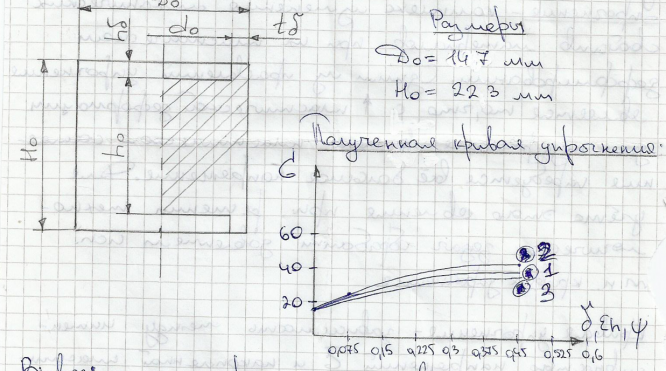 D₀
d₀
tδ
h₀
H₀
Размеры
D₀ = 14.7 мм
H₀ = 22.3 мм
Полученная кривая упрочнения:
σ
60
40
20
2
1
3
δ, εh, ψ
0,075 0,15 0,225 0,3 0,375 0,45 0,525 0,6